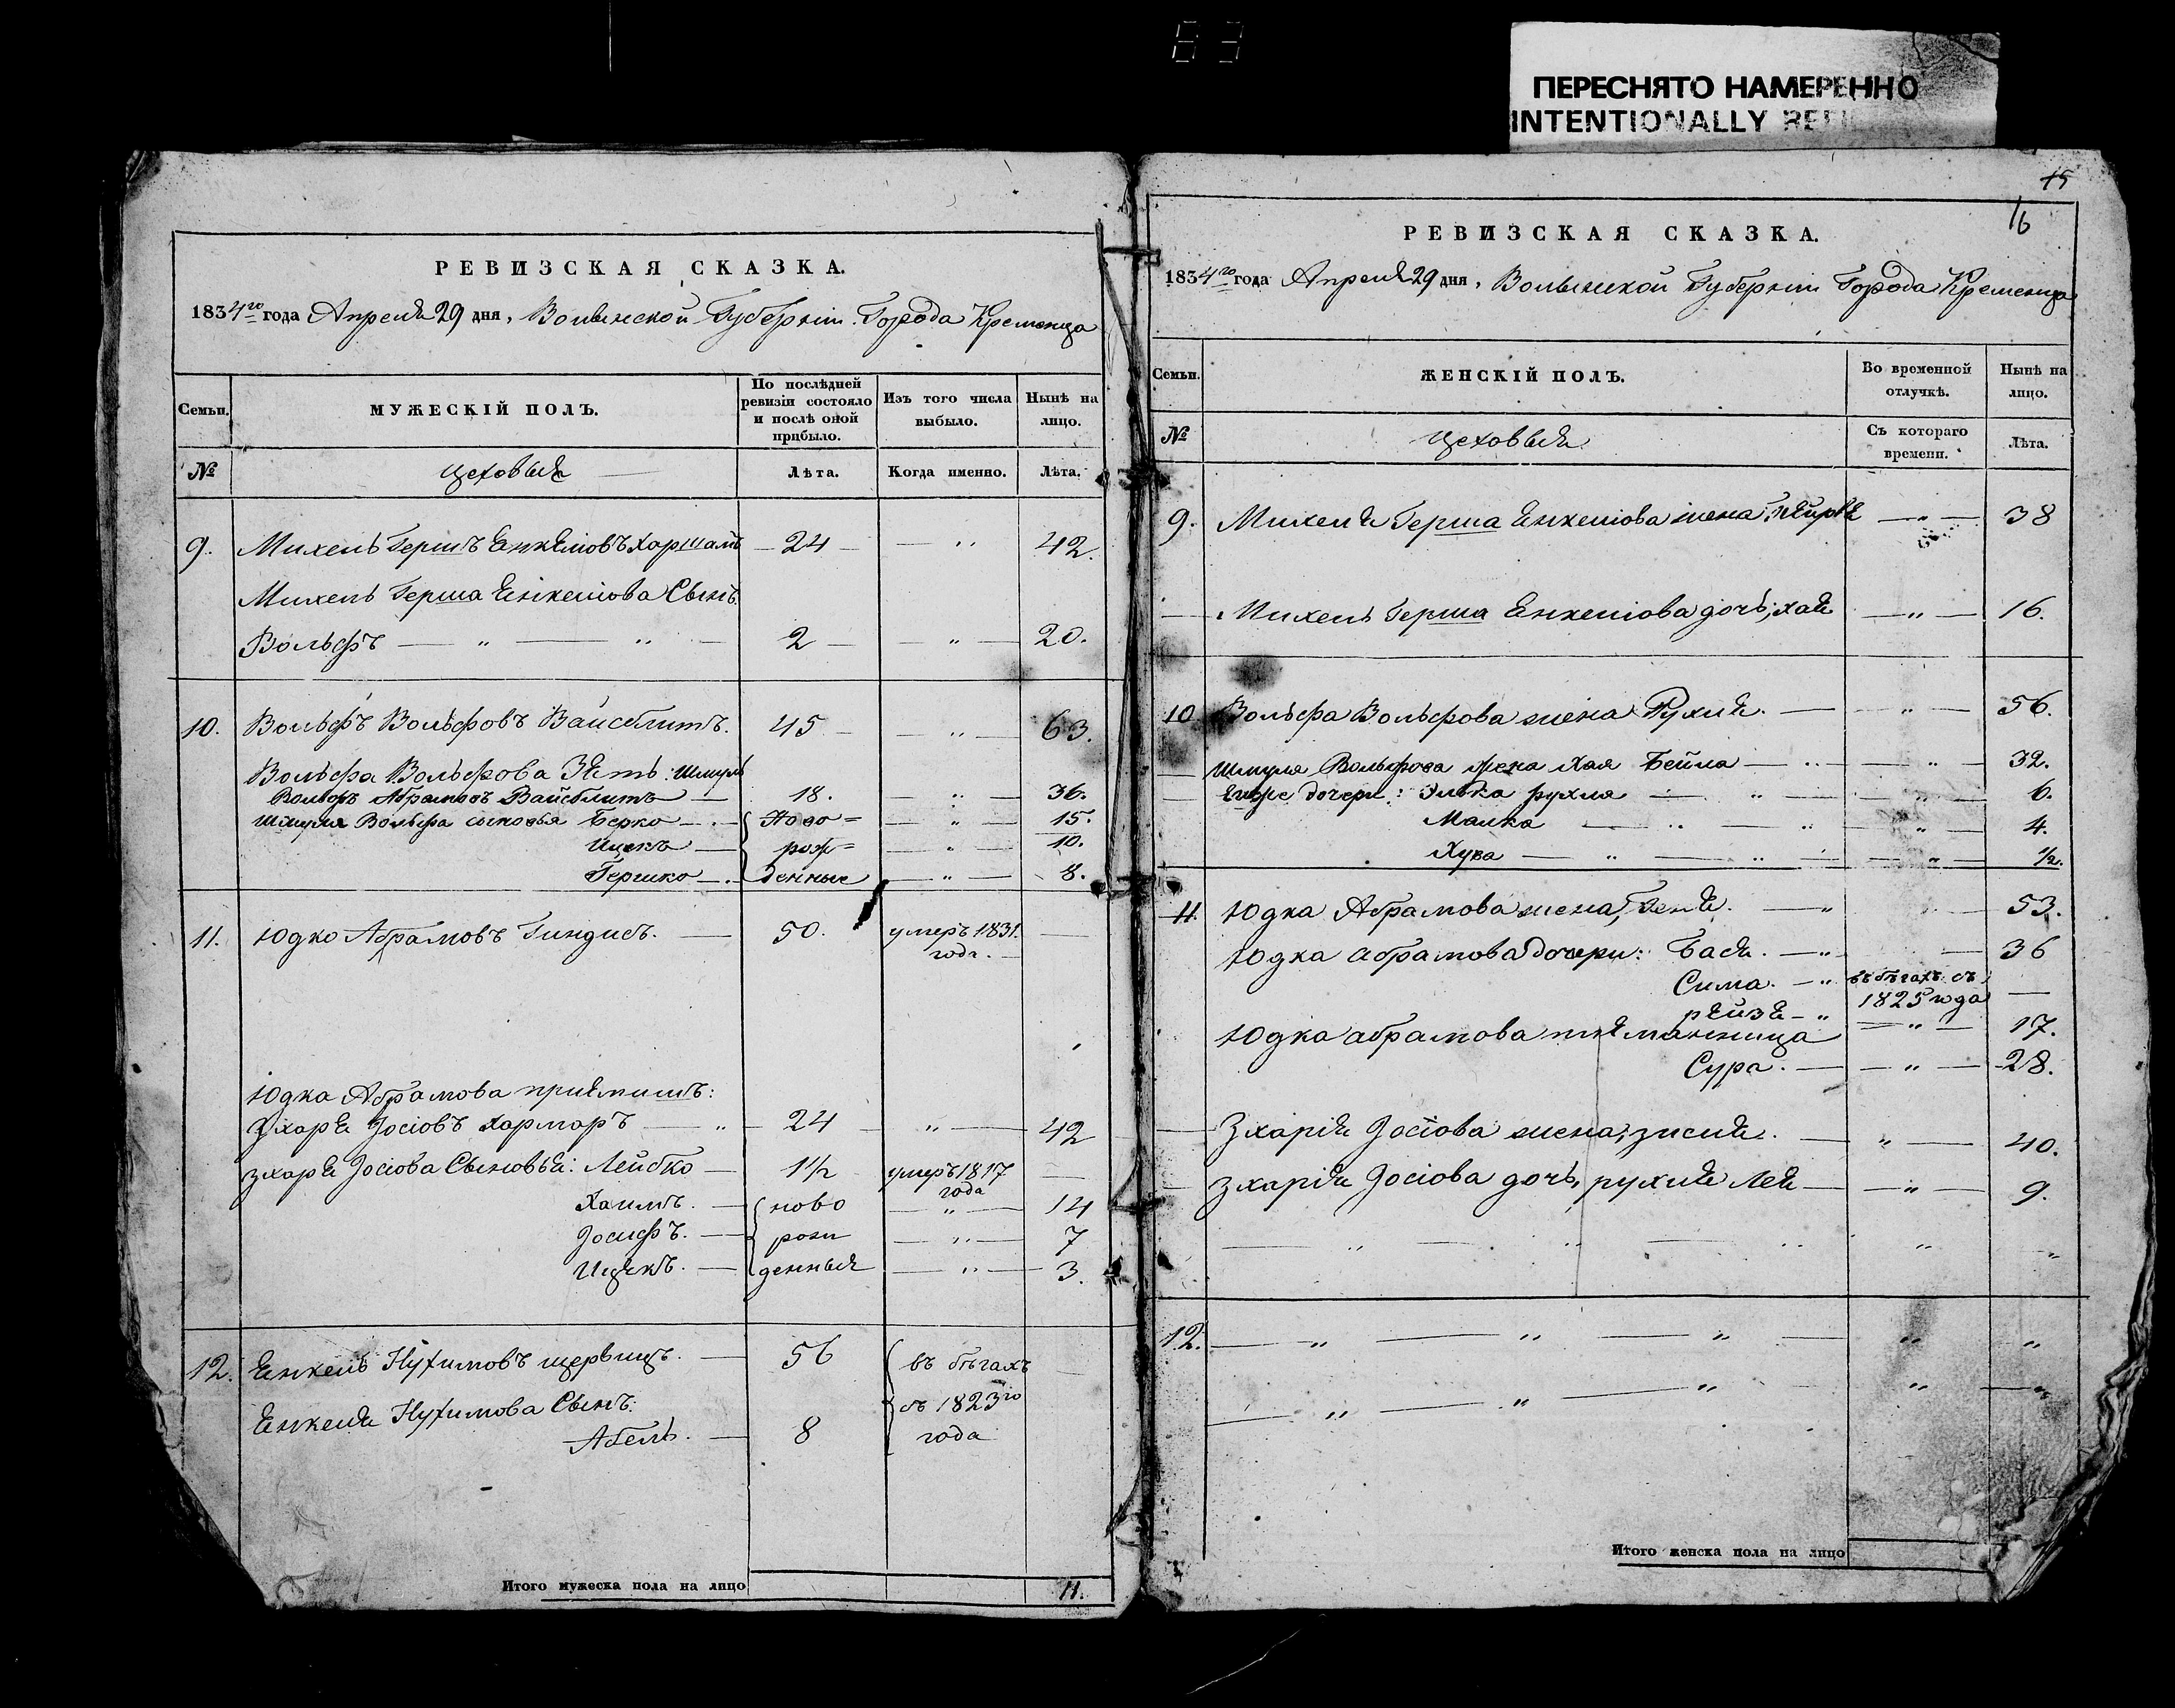 ПЕРЕСНЯТО НАМЕРЕННО
INTENTIONALLY
РЕВИЗСКАЯ СКАЗКА.
1834го года Апреля 29 дня, Волынской Губерніи Города Кременца
Семьи.
МУЖЕСКІЙ ПОЛЪ.
По послѣдней ревизіи состояло и послѣ оной прибыло.
Изъ того числа выбыло.
Нынѣ на лицо.
№
цеховыя
Лѣта.
Когда именно.
Лѣта.
9. Михель Гершъ Енкелювъ 24 42.
Михель Герша Енкелюва Сынъ.
Вольфъ 2 20.
10. Вольфъ Вольфовъ Вайсблитъ. 45 63.
Вольфа Вольфова Зять: Шмуль
Вольфъ Абрамовъ Вайсблитъ 18. 36.
Шмуля Вольфа сыновья Берко Ново= 15.
Ицекъ рож= 10.
Гершко денные 8.
11. Юдко Абрамовъ Гиндисъ. 50. умеръ 1831.
года.
Юдка Абрамова приямишъ:
Зхаря Јосіовъ хармаръ 24 42
зхаря Јосіова Сыновья: Лейбко 1½ умеръ 1817
года
Хаимъ. ново 14
Јосифъ. рож 7
Ицякъ. денныя 3.
12. Енкель Нухимовъ 56 въ бѣгахъ
Енкеля Нухимова Сынъ: съ 1823го
Абель. 8 года
Итого мужеска пола на лицо 11.
15
16
РЕВИЗСКАЯ СКАЗКА.
1834го года Апреля 29 дня, Волынской Губерніи Города Кременца
Семьи.
ЖЕНСКІЙ ПОЛЪ.
Во временной отлучкѣ.
Нынѣ на лицо.
№
цеховыя
Съ котораго времени.
Лѣта.
9. Михеля Герша Енкелюва жена, 38
Михель Герша Енкелюва дочь; хая 16.
10 Вольфа Вольфова жена Рухля. 56.
Шмуля Вольфова жена Хая Бейла 32.
Ево же дочери: Элька рухля 6.
Малка 4.
Хува ½.
11. Юдка Абрамова жена, Геня. 53.
Юдка абрамова дочери: Бася. 36
Сима. въ бѣгахъ съ
1825 года
рейзя 17.
Юдка абрамова племянница
Сура. 28.
Зхарія Јосіова жена, зисля. 40.
Зхарія Јосіова дочь, рухля Лея 9.
12.
Итого женска пола на лицо